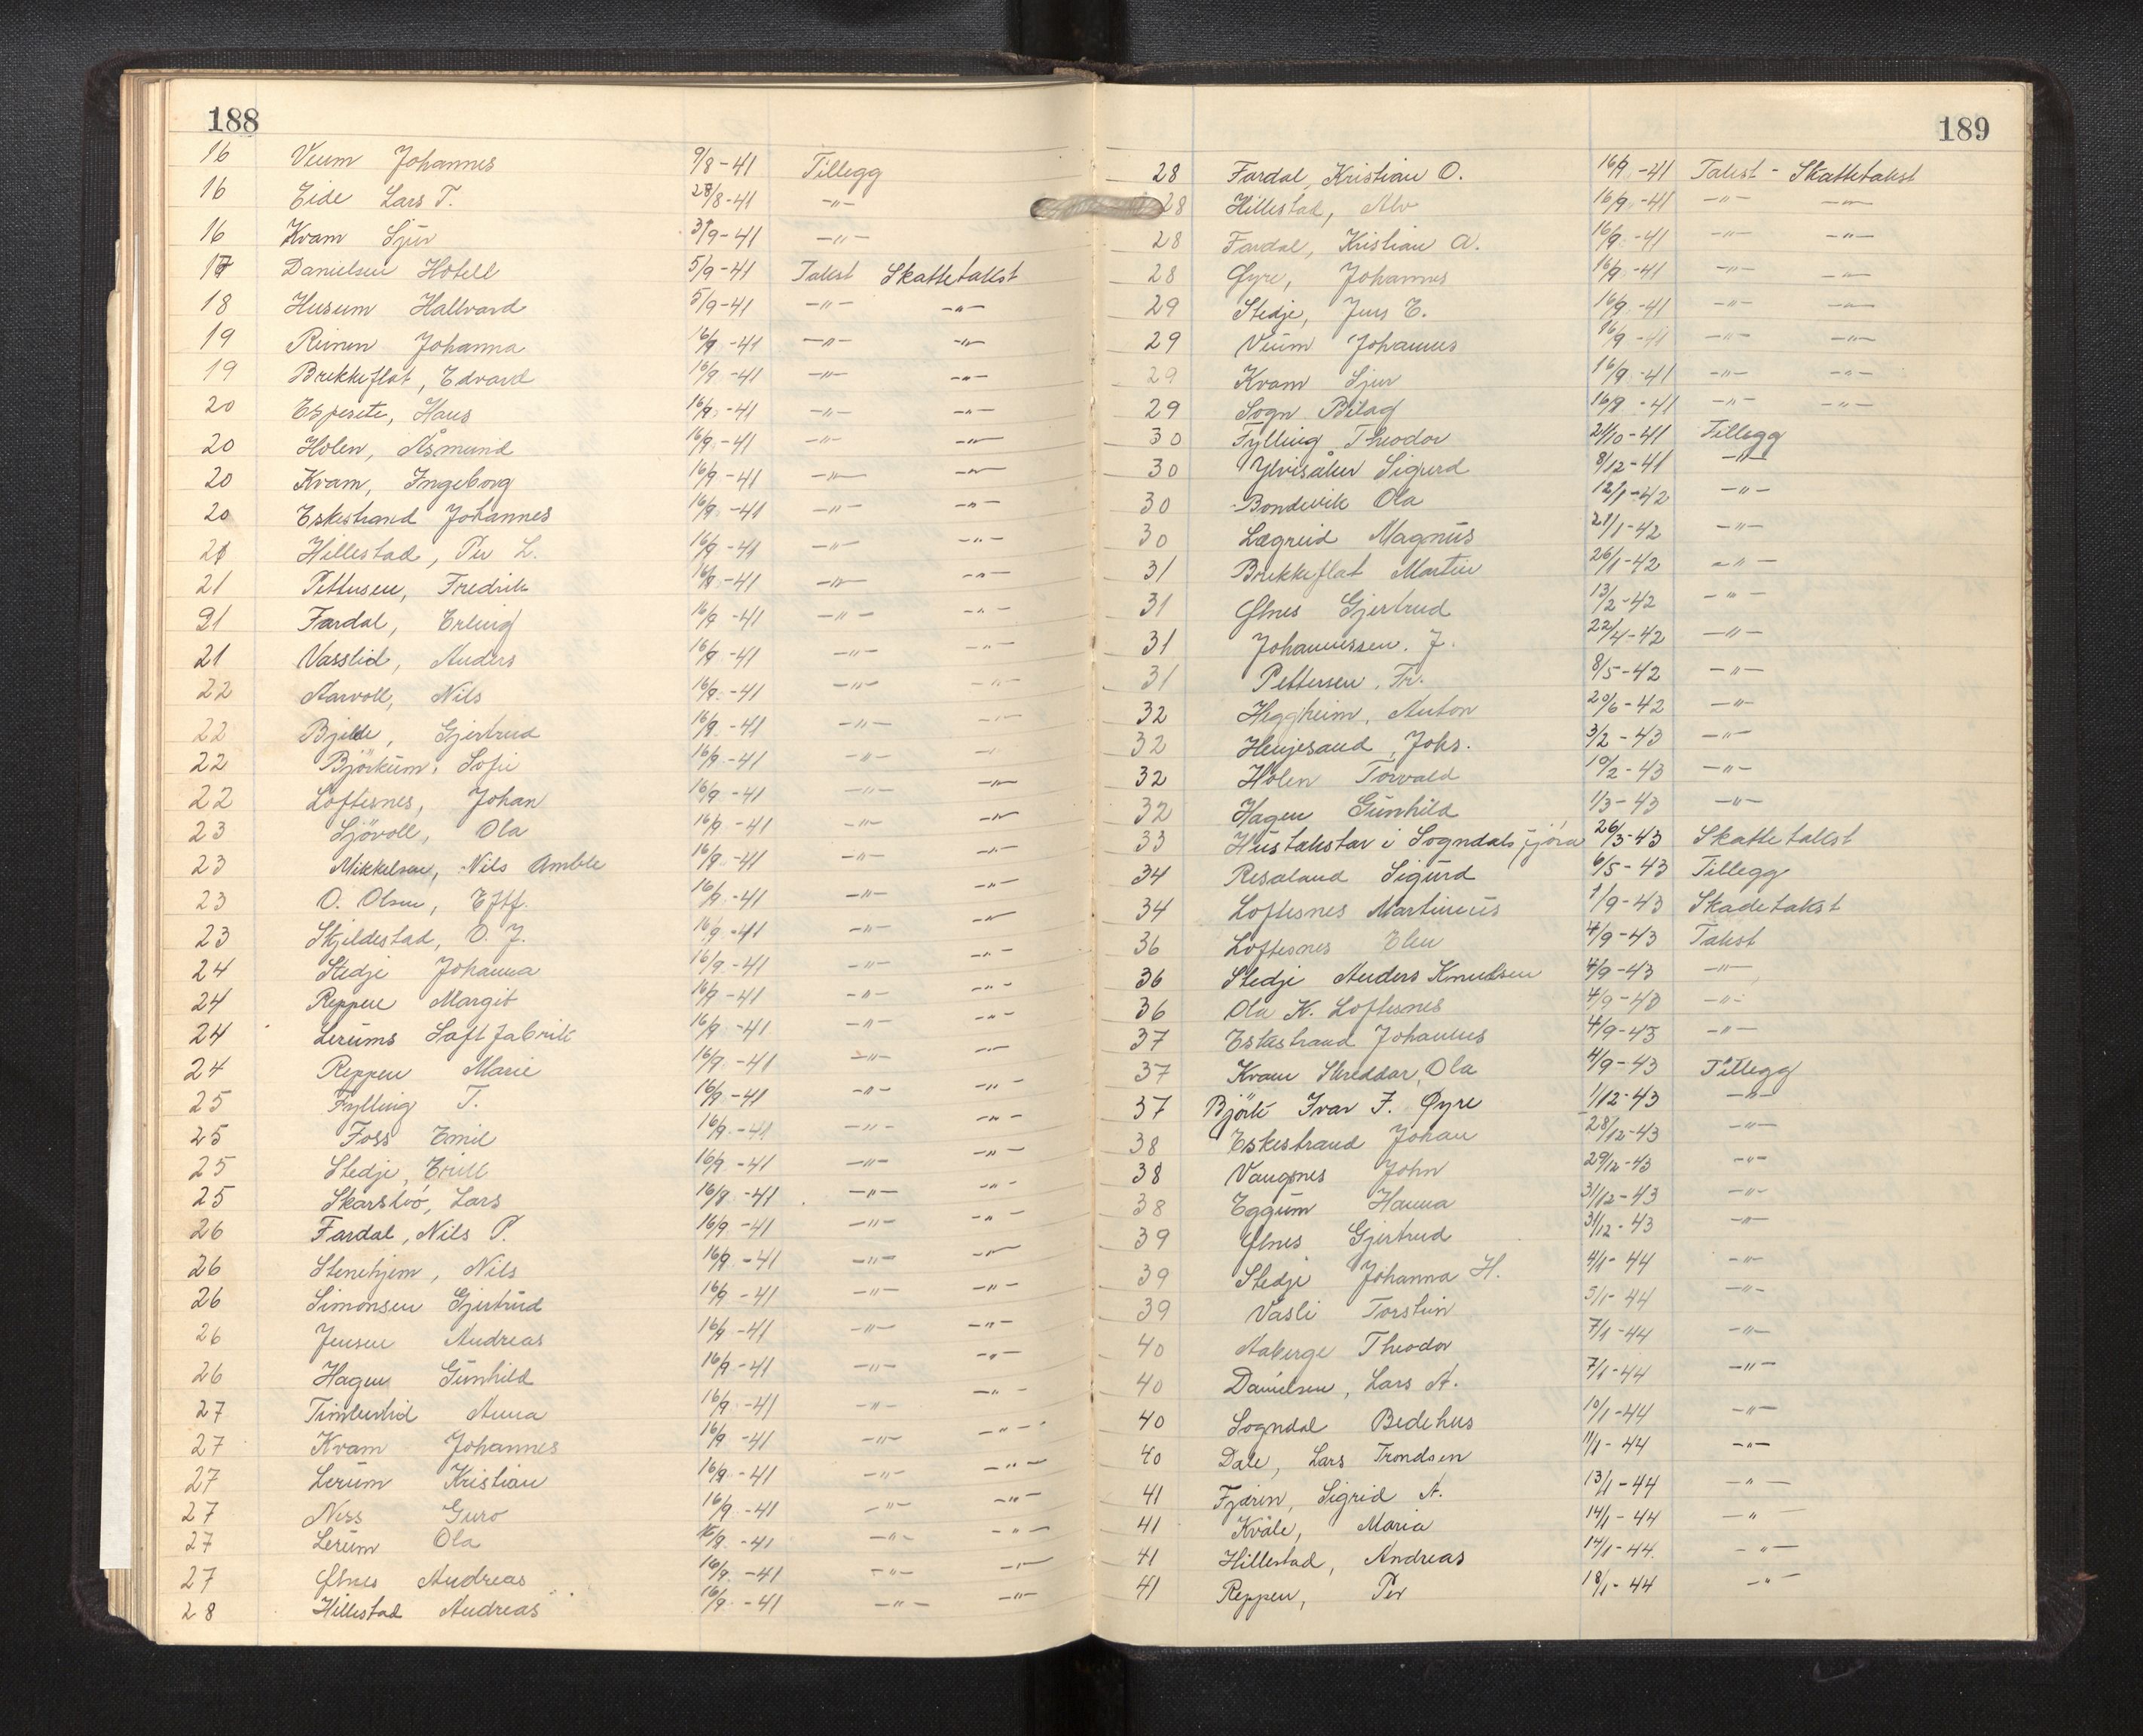 188
16 Vium Johannes 9/8-41 Tillegg
16 Eide Lars T. 28/8-41 -"-
16 Kvam Sjur 3/9-41 -"-
17 Danielsen Hotell 5/9-41 Takst Skattetakst
18 Husum Hallvard 5/9-41 -"- -"-
19 Reinen Johanna 16/9-41 -"- -"-
19 Brekkeflat, Edvard 16/9-41 -"- -"-
20 Esperete, Hans 16/9-41 -"- -"-
20 Holen, Åsmund 16/9-41 -"- -"-
20 Kvam, Ingeborg 16/9-41 -"- -"-
20 Eskestrand Johannes 16/9-41 -"- -"-
21 Hillestad, Per L. 16/9-41 -"- -"-
21 Pettersen, Fredrik 16/9-41 -"- -"-
21 Fardal, Erling 16/9-41 -"- -"-
21 Vasslid, Anders 16/9-41 -"- -"-
22 Aarvoll, Nils 16/9-41 -"- -"-
22 Bjelde, Gjertrud 16/9-41 -"- -"-
22 Björkum, Sofie 16/9-41 -"- -"-
22 Loftesnes, Johan 16/9-41 -"- -"-
23 Sjövoll, Ola 16/9-41 -"- -"-
23 Mikkelsen, Nils Amble 16/9-41 -"- -"-
23 O. Olsen, Eftf. 16/9-41 -"- -"-
23 Skjeldestad, O. J. 16/9-41 -"- -"-
24 Stedje Johanna 16/9-41 -"- -"-
24 Reppen Margit 16/9-41 -"- -"-
24 Lerums Saftfabrikk 16/9-41 -"- -"-
24 Reppen Marie 16/9-41 -"- -"-
25 Fylling T. 16/9-41 -"- -"-
25 Foss Emil 16/9-41 -"- -"-
25 Stedje, Eirik 16/9-41 -"- -"-
25 Skarsbö, Lars 16/9-41 -"- -"-
26 Fardal, Nils P. 16/9-41 -"- -"-
26 Stenehjem, Nils 16/9-41 -"- -"-
26 Simonsen Gjertrud 16/9-41 -"- -"-
26 Jensen Andreas 16/9-41 -"- -"-
26 Hagen Gunhild 16/9-41 -"- -"-
27 Timberlid Anna 16/9-41 -"- -"-
27 Kvam Johannes 16/9-41 -"- -"-
27 Lerum Kristian 16/9-41 -"- -"-
27 Ness Guro 16/9-41 -"- -"-
27 Lerum Ola 16/9-41 -"- -"-
27 Ølnes Andreas 16/9-41 -"- -"-
28 Hillestad Andreas 16/9-41 -"- -"-
189
28 Fardal, Kristian O. 16/9-41 Takst - Skattetakst
28 Hillestad, Alv 16/9-41 -"- -"-
28 Fardal, Kristian A. 16/9-41 -"- -"-
28 Øyre, Johannes 16/9-41 -"- -"-
29 Stedje, Jens E. 16/9-41 -"- -"-
29 Vium Johannes 16/9-41 -"- -"-
29 Kvam Sjur 16/9-41 -"- -"-
29 Sogn Bilag 16/9-41 -"- -"-
30 Fylling Theodor 21/10-41 Tillegg
30 Ylvisåker Sigurd 8/12-41 -"-
30 Bondevik Ola 12/1-42 -"-
30 Lægreid Magnus 21/1-42 -"-
31 Brekkeflat Martin 26/1-42 -"-
31 Ølnes Gjertrud 13/2-42 -"-
31 Johannessen. J. 22/4-42 -"-
31 Pettersen, Fr. 8/5-42 -"-
32 Heggheim, Anton 20/6-42 -"-
32 Henjesand, Johs. 3/2-43 -"-
32 Holen Torvald 10/2-43 -"-
32 Hagen Gunhild 1/3-43 -"-
33 Hustakstar i Sogndalsfjöra 26/3-43 Skattetakst
34 Resaland Sigurd 6/5-43 Tillegg
34 Loftesnes Martineus 1/9-43 Skadetakst
36 Loftesnes Elen 4/9-43 Takst
36 Stedje Anders Knudsen 4/9-43 -"-
36 Ola K. Loftesnes 4/9-43 -"-
37 Eskestrand Johannes 4/9-43 -"-
37 Kvam Skreddar, Ola 4/9-43 Tillegg
37 Björk Ivar F. Øyre 1/12-43 -"-
38 Eskestrand Johan 28/12-43 -"-
38 Vangsnes John 29/12-43 -"-
38 Eggum Hanna 31/12-43 -"-
39 Ølnes Gjertrud 31/12-43 -"-
39 Stedje Johanna H. 4/1-44 -"-
39 Vasli Torstein 5/1-44 -"-
40 Aaberge Theodor 7/1-44 -"-
40 Danielsen, Lars A. 7/1-44 -"-
40 Sogndal Bedehus 10/1-44 -"-
40 Dale, Lars Trondsen 11/1-44 -"-
41 Fjærin, Sigrid A. 13/1-44 -"-
41 Kvåle, Maria 14/1-44 -"-
41 Hillestad, Andreas 14/1-44. -"-
41 Reppen, Per 18/1-44 -"-